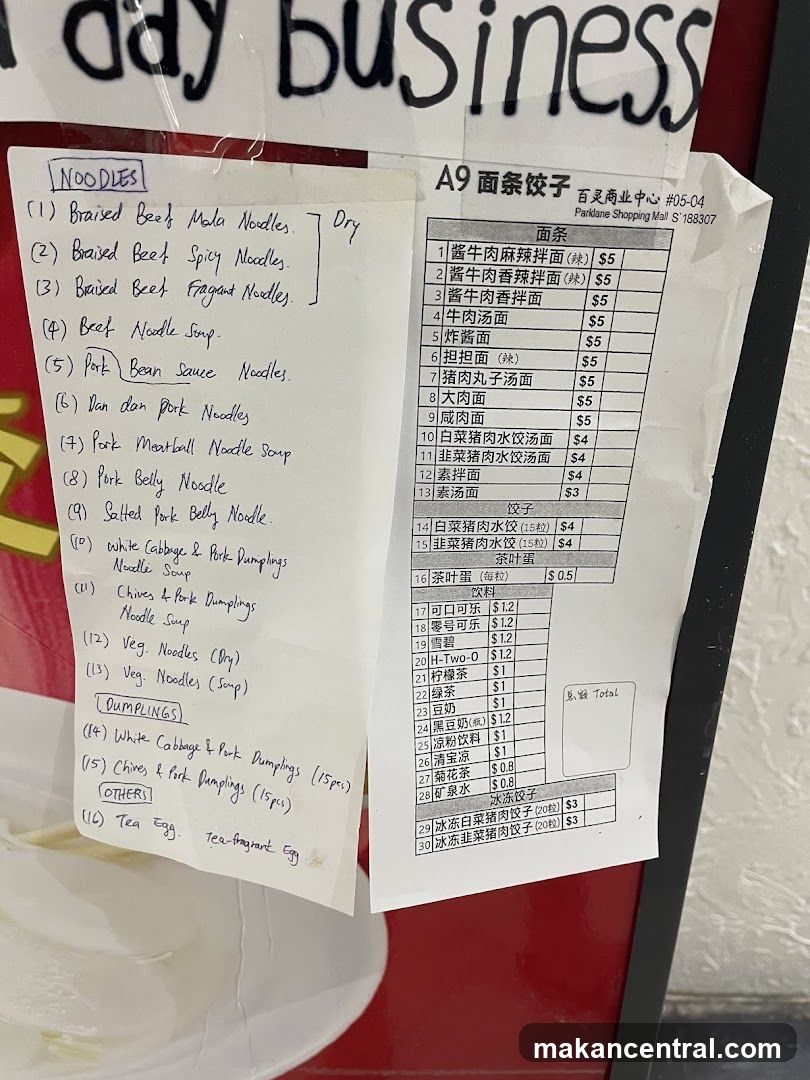 day business
NOODLES
(1) Braised Beef Mala Noodles. Dry
(2) Braised Beef Spicy Noodles.
(3) Braised Beef Fragant Noodles.
(4) Beef Noodle Soup.
(5) Pork Bean Sauce Noodles.
(6) Dan dan pork Noodles
(7) Pork Meatball Noodle Soup
(8) Pork Belly Noodle
(9) Salted Pork Belly Noodle.
(10) White Cabbage & Pork Dumplings
Noodle Soup
(11) Chives & Pork Dumplings
Noodle Soup
(12) Veg. Noodles (Dry)
(13) Veg. Noodles (Soup)
DUMPLINGS
(14) White Cabbage & Pork Dumplings (15pcs)
(15) Chives & Pork Dumplings (15pcs)
OTHERS
(16) Tea Egg. Tea-fragrant Egg
A9 面条饺子 百灵商业中心 #05-04
Parklane Shopping Mall S`188307
面条
1 酱牛肉麻辣拌面 (辣) $5
2 酱牛肉香辣拌面 (辣) $5
3 酱牛肉香拌面 $5
4 牛肉汤面 $5
5 炸酱面 $5
6 担担面 (辣) $5
7 猪肉丸子汤面 $5
8 大肉面 $5
9 咸肉面 $5
10 白菜猪肉水饺汤面 $4
11 韭菜猪肉水饺汤面 $4
12 素拌面 $4
13 素汤面 $3
饺子
14 白菜猪肉水饺 (15粒) $4
15 韭菜猪肉水饺 (15粒) $4
茶叶蛋
16 茶叶蛋 (每粒) $0.5
饮料
17 可口可乐 $1.2
18 零号可乐 $1.2
19 雪碧 $1.2
20 H-Two-O $1.2
21 柠檬茶 $1
22 绿茶 $1
23 豆奶 $1
24 黑豆奶(瓶) $1.2
25 凉粉饮料 $1
26 清宝凉 $1
27 菊花茶 $0.8
28 矿泉水 $0.8
总额 Total
冰冻饺子
29 冰冻白菜猪肉饺子 (20粒) $3
30 冰冻韭菜猪肉饺子 (20粒) $3
makancentral.com